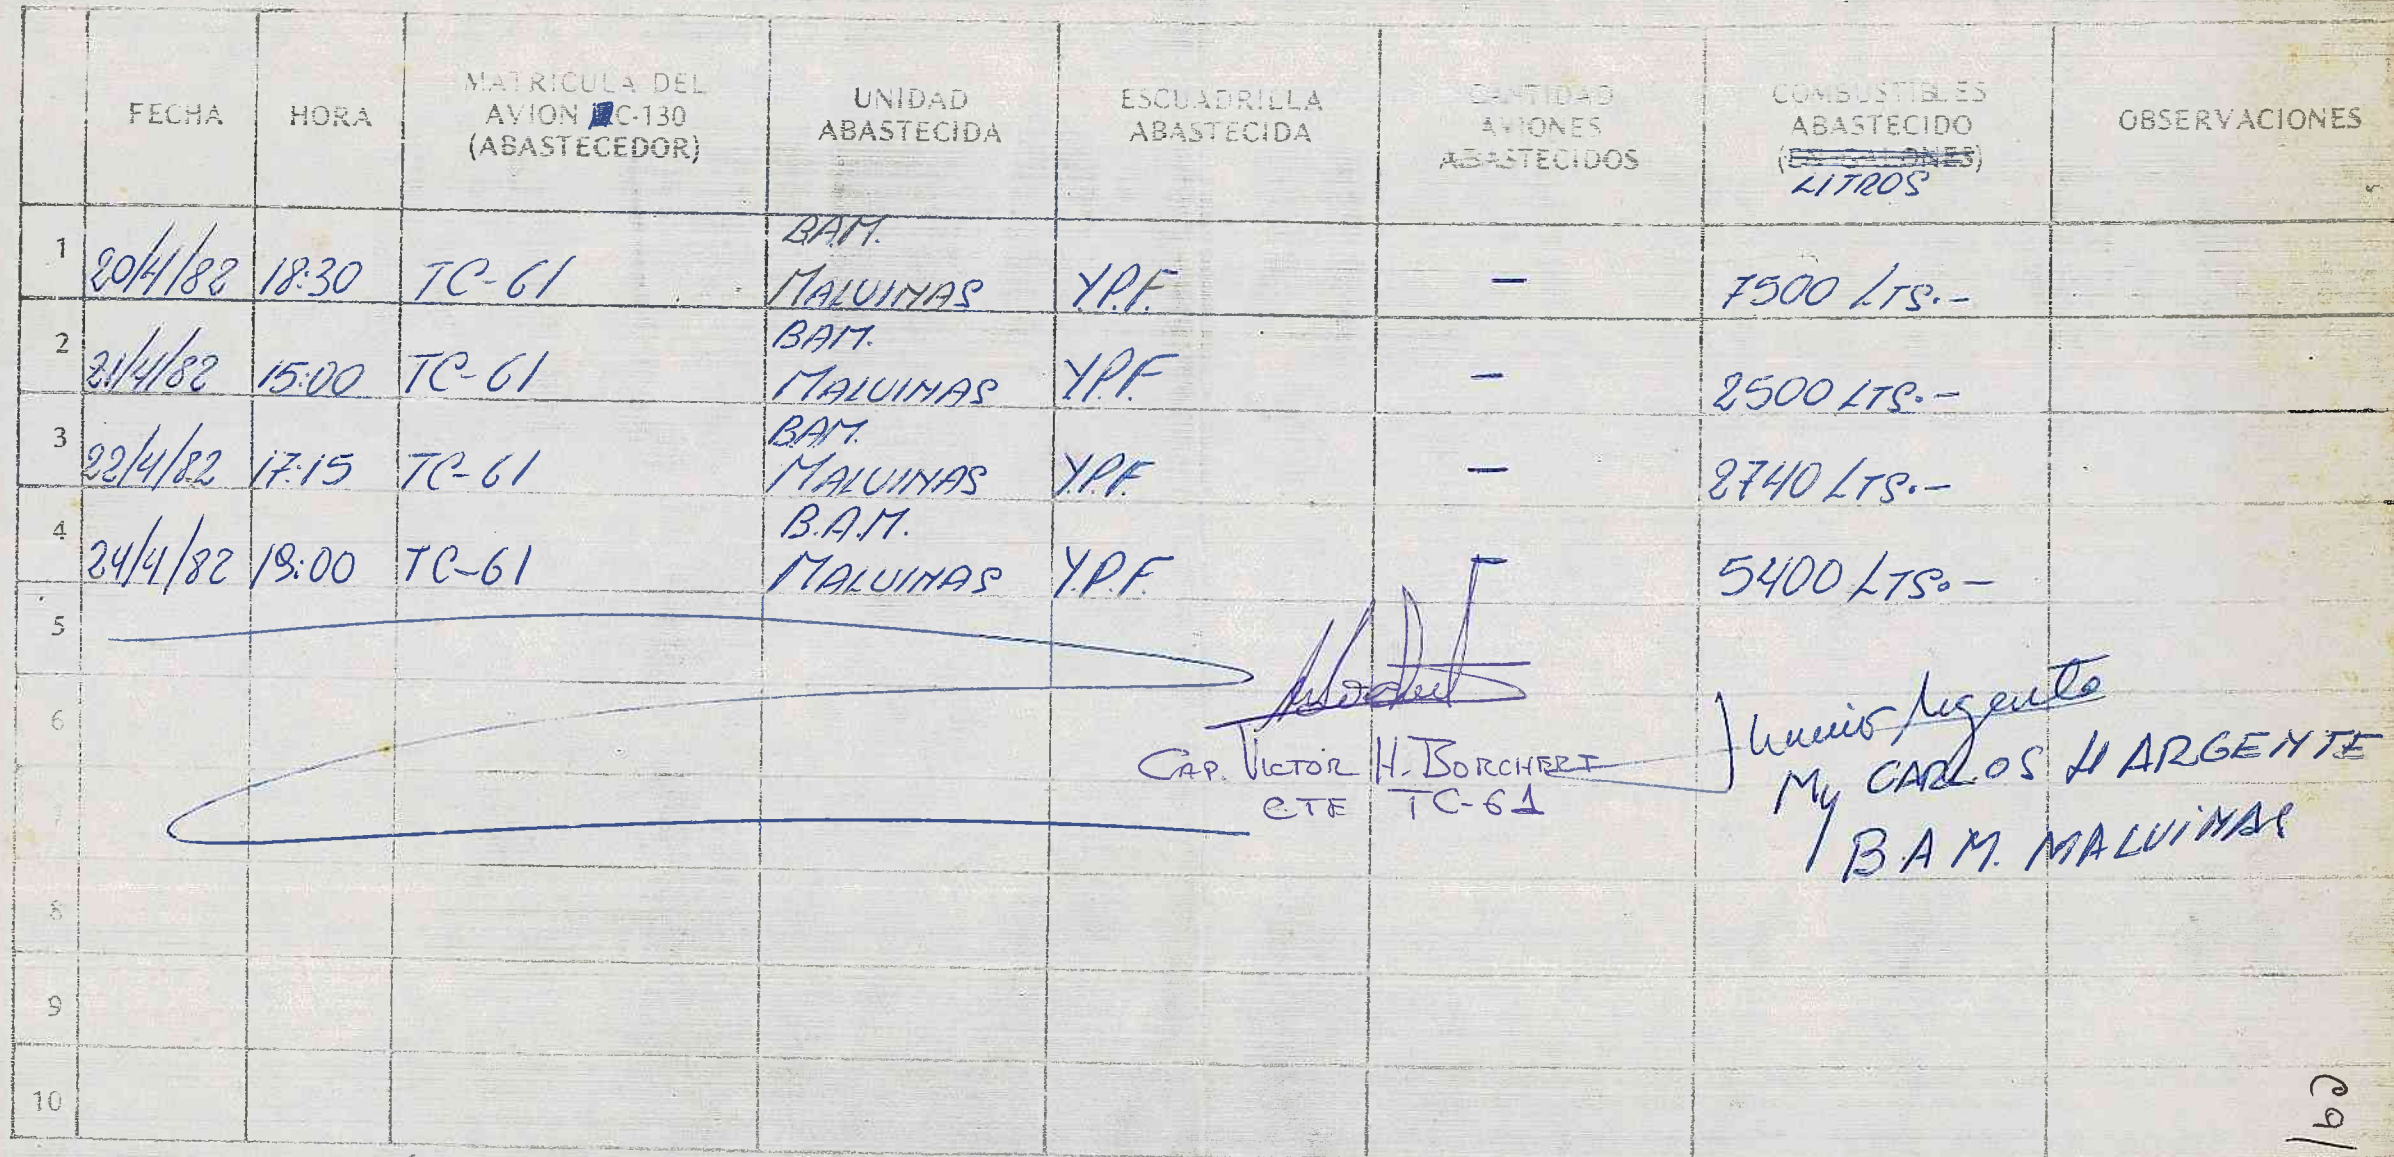 FECHA HORA MATRICULA DEL AVION C-130 (ABASTECEDOR) UNIDAD ABASTECIDA ESCUADRILLA ABASTECIDA CANTIDAD AVIONES ABASTECIDOS COMBUSTIBLES ABASTECIDO (EN GALONES) LITROS OBSERVACIONES
1 20/4/82 18:30 TC-61 BAM. MALVINAS Y.P.F. - 7500 LTS.-
2 21/4/82 15:00 TC-61 BAM. MALVINAS Y.P.F. - 2500 LTS.-
3 22/4/82 17:15 TC-61 BAM. MALVINAS Y.P.F. - 2740 LTS.-
4 24/4/82 19:00 TC-61 B.A.M. MALVINAS Y.P.F. - 5400 LTS.-
5
6
CAP. VICTOR H. BORCHERT
CTE TC-61
My CARLOS H ARGENTE
B.A.M. MALVINAS
7
8
9
10